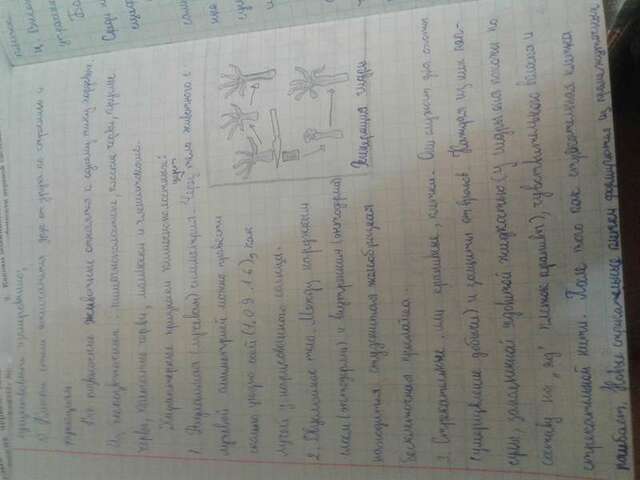 существовать
2) Клетки стали отличаться друг от друга по строению и
функциям
Все позвоночные животные относятся к одному типу хордовые.
Из беспозвоночных: кишечнополостные, плоские черви, круглые
черви, кольчатые черви, моллюски и членистоногие.
Характерные признаки кишечнополостных:
1. Радиальная (лучевая) симметрия. Через тело животного с
лучевой симметрией можно провести
сколько угодно осей как
лучей у нарисованного солнца.
2. Двуслойное тело. Между наружным
слоем (эктодерма) и внутренним (энтодерма)
находится студенистая желеобразная
бесклеточная прослойка.
Регенерация гидры
3. Стрекательные или крапивные, клетки. Они служат для охоты
(умерщвление добычи) и защиты от врагов. Каждая из них кап-
сула, заполненная ядовитой жидкостью (у гидры она похожа по
составу на "яд" клеток крапивы), чувствительного волоска и
стрекательной нити. После того как стрекательная клетка
Новые стрекательные клетки формируются из промежуточных